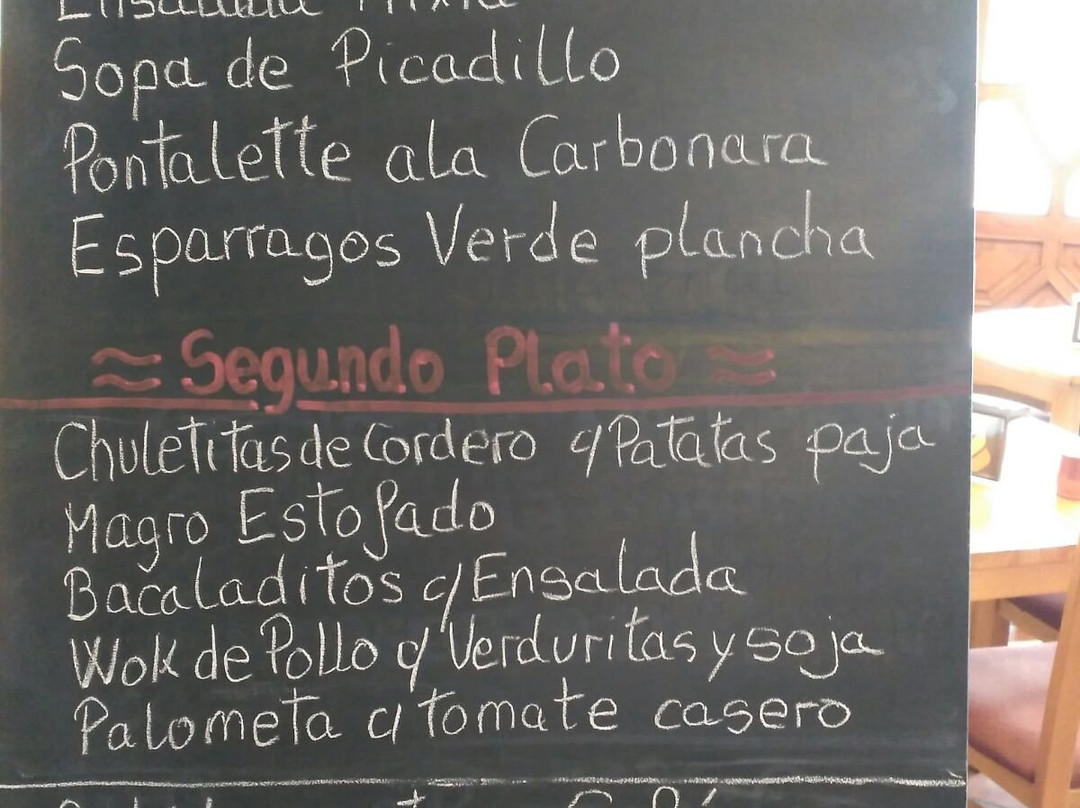 Ensalada Mixta
Sopa de Picadillo
Pontalette ala Carbonara
Esparragos Verde plancha
≈ Segundo Plato ≈
Chuletitas de Cordero c/Patatas paja
Magro Estofado
Bacaladitos c/Ensalada
Wok de Pollo c/Verduritas y soja
Palometa c/tomate casero